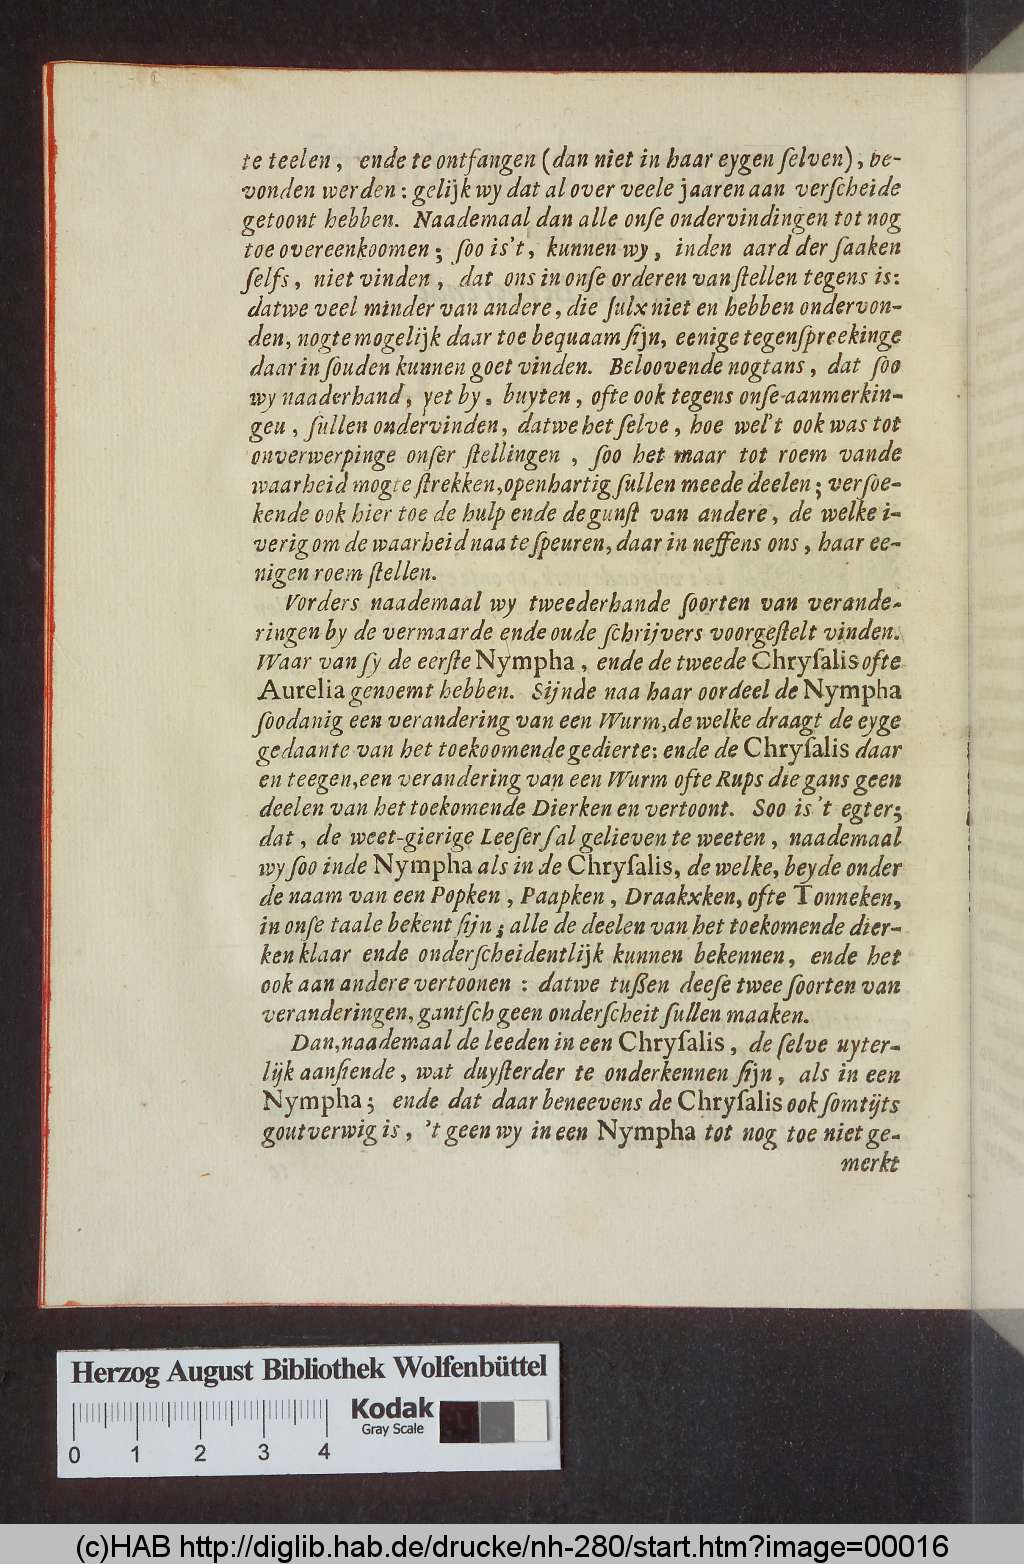 te teelen, ende te ontfangen (dan niet in haar eygen ſelven), be-
vonden werden: gelijk wy dat al over veele jaaren aan verſcheide
getoont hebben. Naademaal dan alle onſe ondervindingen tot nog
toe overeenkoomen; ſoo is't, kunnen wy, inden aard der ſaaken
ſelfs, niet vinden, dat ons in onſe orderen van ſtellen tegens is:
datwe veel minder van andere, die ſulx niet en hebben ondervon-
den, nogte mogelijk daar toe bequaam ſijn, eenige tegenſpreekinge
daar in ſouden kunnen goet vinden. Beloovende nogtans, dat ſoo
wy naaderhand, yet by, buyten, ofte ook tegens onſe aanmerkin-
gen, ſullen ondervinden, datwe het ſelve, hoe wel't ook was tot
onverwerpinge onſer ſtellingen, ſoo het maar tot roem vande
waarheid mogte ſtrekken, openhartig ſullen meede deelen; verſoe-
kende ook hier toe de hulp ende de gunſt van andere, de welke i-
verig om de waarheid naa te ſpeuren, daar in neffens ons, haar ee-
nigen roem ſtellen.
Vorders naademaal wy tweederhande ſoorten van verande-
ringen by de vermaarde ende oude ſchrijvers voorgeſtelt vinden.
Waar van ſy de eerſte Nympha, ende de tweede Chryſalis ofte
Aurelia genoemt hebben. Sijnde naa haar oordeel de Nympha
ſoodanig een verandering van een Wurm, de welke draagt de eyge
gedaante van het toekoomende gedierte: ende de Chryſalis daar
en teegen, een verandering van een Wurm ofte Rups die gans geen
deelen van het toekomende Dierken en vertoont. Soo is't egter;
dat, de weet-gierige Leeſer ſal gelieven te weeten, naademaal
wy ſoo inde Nympha als in de Chryſalis, de welke, beyde onder
de naam van een Popken, Paapken, Draakxken, ofte Tonneken,
in onſe taale bekent ſijn; alle de deelen van het toekomende dier-
ken klaar ende onderſcheidentlijk kunnen bekennen, ende het
ook aan andere vertoonen: datwe tußen deeſe twee ſoorten van
veranderingen, gantſch geen onderſcheit ſullen maaken.
Dan, naademaal de leeden in een Chryſalis, de ſelve uyter-
lijk aanſiende, wat duyſterder te onderkennen ſijn, als in een
Nympha; ende dat daar beneevens de Chryſalis ook ſomtijts
goutverwig is, 't geen wy in een Nympha tot nog toe niet ge-
merkt
Herzog August Bibliothek Wolfenbüttel
Kodak
Gray Scale
0 1 2 3 4
(c)HAB http://diglib.hab.de/drucke/nh-280/start.htm?image=00016